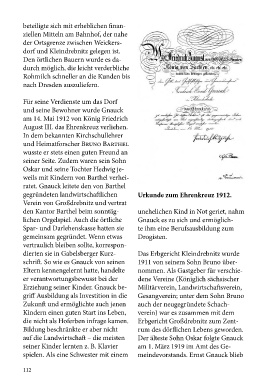 beteiligte sich mit erheblichen finan-
ziellen Mitteln am Bahnhof, der nahe
der Ortsgrenze zwischen Weickers-
dorf und Kleindrebnitz gelegen ist.
Den örtlichen Bauern wurde es da-
durch möglich, die leicht verderbliche
Rohmilch schneller an die Kunden bis
nach Dresden auszuliefern.
Für seine Verdienste um das Dorf
und seine Bewohner wurde Grauck
am 14. Mai 1912 von König Friedrich
August III. das Ehrenkreuz verliehen.
In dem bekannten Kirchschullehrer
und Heimatforscher BRUNO BARTHEL
wusste er stets einen guten Freund an
seiner Seite. Zudem waren sein Sohn
Oskar und seine Tochter Hedwig je-
weils mit Kindern von Barthel verhei-
ratet. Grauck leitete den von Barthel
gegründeten landwirtschaftlichen
Verein von Großdrebnitz und vertrat
den Kantor Barthel beim sonntäg-
lichen Orgelspiel. Auch die örtliche
Spar- und Darlehenskasse hatten sie
gemeinsam gegründet. Wenn etwas
vertraulich bleiben sollte, korrespon-
dierten sie in Gabelsberger Kurz-
schrift. So wie es Grauck von seinen
Eltern kennengelernt hatte, handelte
er verantwortungsbewusst bei der
Erziehung seiner Kinder. Grauck be-
griff Ausbildung als Investition in die
Zukunft und ermöglichte auch jenen
Kindern einen guten Start ins Leben,
die nicht als Hoferben infrage kamen.
Bildung beschränkte er aber nicht
auf die Landwirtschaft – die meisten
seiner Kinder lernten z. B. Klavier
spielen. Als eine Schwester mit einem
Urkunde zum Ehrenkreuz 1912.
unehelichen Kind in Not geriet, nahm
Grauck es zu sich und ermöglich-
te ihm eine Berufsausbildung zum
Drogisten.
Das Erbgericht Kleindrebnitz wurde
1911 von seinem Sohn Bruno über-
nommen. Als Gastgeber für verschie-
dene Vereine (Königlich sächsischer
Militärverein, Landwirtschaftsverein,
Gesangverein; unter dem Sohn Bruno
auch der neugegründete Schach-
verein) war es zusammen mit dem
Erbgericht Großdrebnitz zum Zent-
rum des dörflichen Lebens geworden.
Der älteste Sohn Oskar folgte Grauck
am 1. März 1919 in das Amt des Ge-
meindevorstands. Ernst Grauck blieb
112